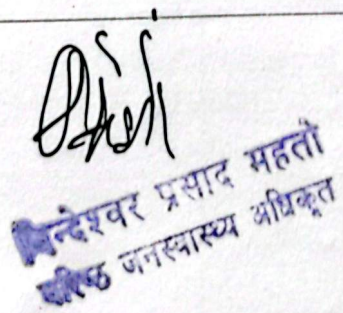 बिन्देश्वर प्रसाद महतो
वरिष्ठ जनस्वास्थ्य अधिकृत